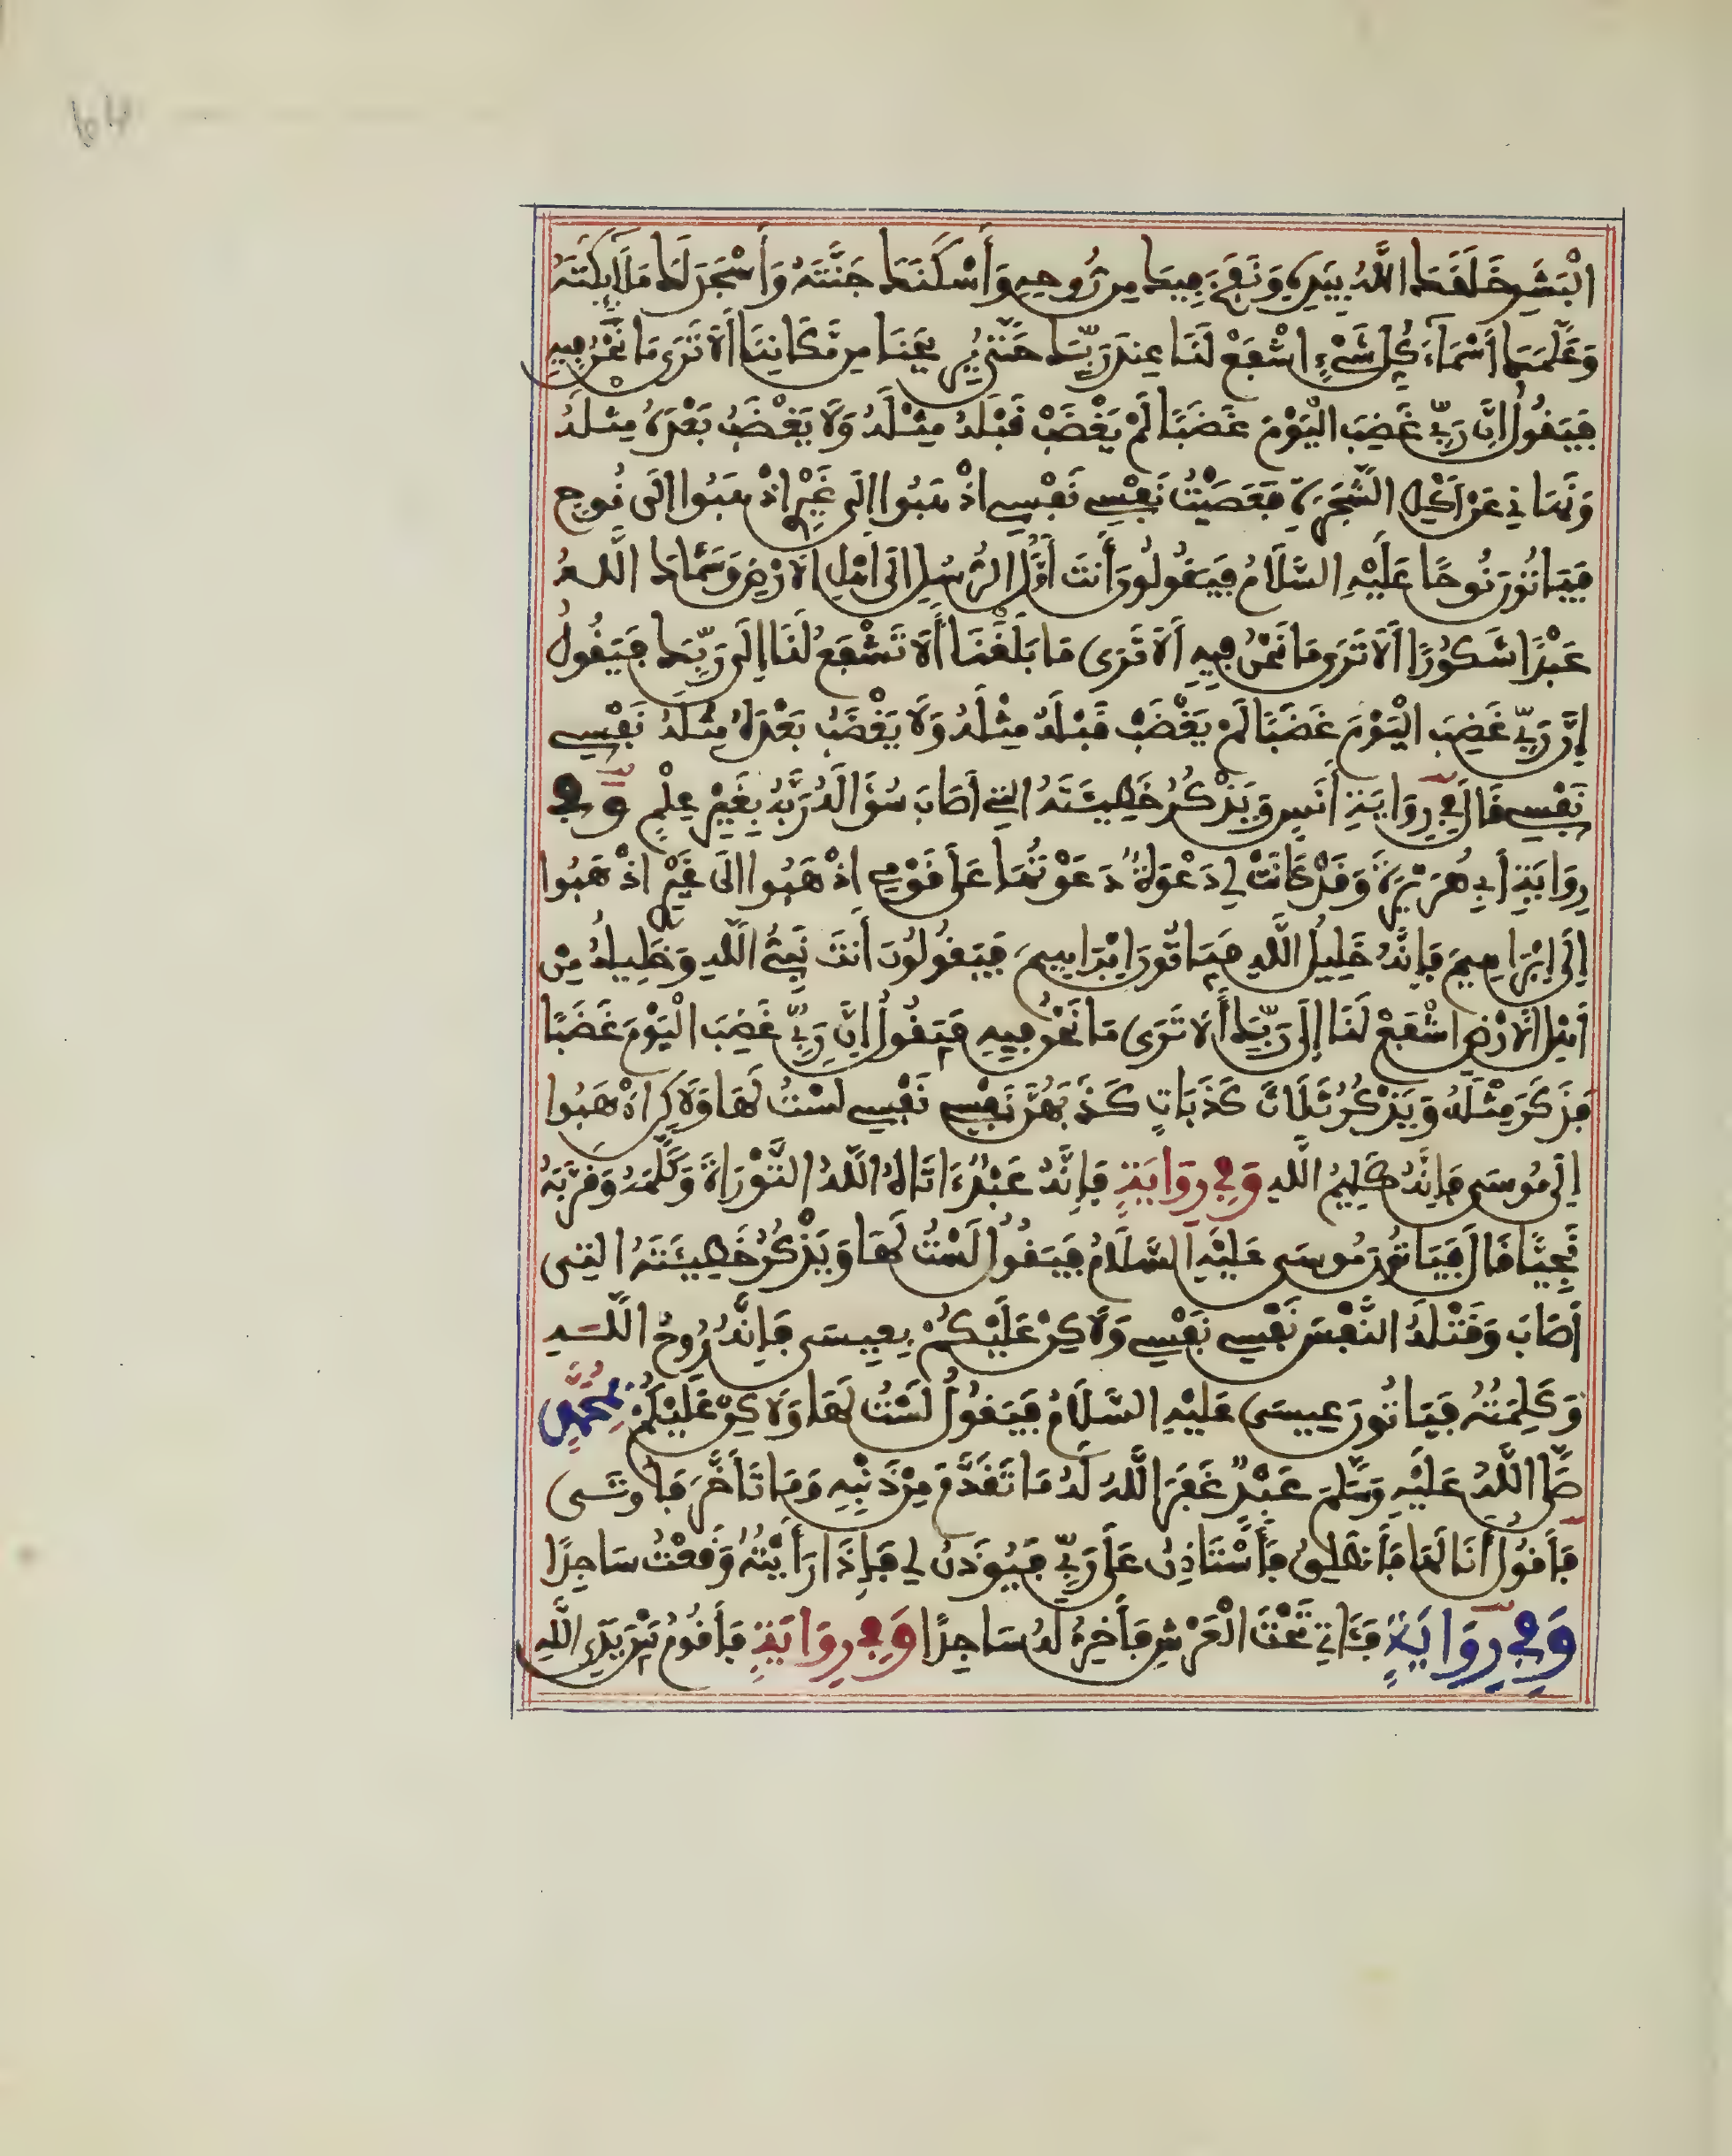 الْبَشَرِ خَلَقَكَ اللَّهُ بِيَدِهِ وَنَفَخَ فِيكَ مِن رُّوحِهِ وَأَسْكَنَكَ جَنَّتَهُ وَأَسْجَدَ لَكَ مَلَائِكَتَهُ
وَعَلَّمَكَ أَسْمَاءَ كُلِّ شَيْءٍ اشْفَعْ لَنَا عِندَ رَبِّكَ حَتَّى يُرِيحَنَا مِن مَّكَانِنَا أَلَا تَرَى مَا نَحْنُ فِيهِ
فَيَقُولُ إِنَّ رَبِّي غَضِبَ الْيَوْمَ غَضَبًا لَمْ يَغْضَبْ قَبْلَهُ مِثْلَهُ وَلَا يَغْضَبُ بَعْدَهُ مِثْلَهُ
وَنَهَانِي عَنْ أَكْلِ الشَّجَرَةِ فَعَصَيْتُ نَفْسِي نَفْسِي اذْهَبُوا إِلَى غَيْرِي اذْهَبُوا إِلَى نُوحٍ
فَيَاتُونَ نُوحًا عَلَيْهِ السَّلَامُ فَيَقُولُونَ أَنتَ أَوَّلُ الرُّسُلِ إِلَى أَهْلِ الْأَرْضِ وَسَمَّاكَ اللَّهُ
عَبْدًا شَكُورًا أَلَا تَرَى مَا نَحْنُ فِيهِ أَلَا تَرَى مَا بَلَغَنَا أَلَا تَشْفَعُ لَنَا إِلَى رَبِّكَ فَيَقُولُ
إِنَّ رَبِّي غَضِبَ الْيَوْمَ غَضَبًا لَمْ يَغْضَبْ قَبْلَهُ مِثْلَهُ وَلَا يَغْضَبُ بَعْدَهُ مِثْلَهُ نَفْسِي
نَفْسِي قَالَ فِي رِوَايَةِ أَنَسٍ وَيَذْكُرُ خَطِيئَتَهُ الَّتِي أَصَابَ سُؤَالَهُ رَبَّهُ بِغَيْرِ عِلْمٍ وَفِي
رِوَايَةِ أَبِي هُرَيْرَةَ وَقَدْ كَانَتْ لِي دَعْوَةٌ دَعَوْتُهَا عَلَى قَوْمِي اذْهَبُوا إِلَى غَيْرِي اذْهَبُوا
إِلَى إِبْرَاهِيمَ فَإِنَّهُ خَلِيلُ اللَّهِ فَيَاتُونَ إِبْرَاهِيمَ فَيَقُولُونَ أَنتَ نَبِيُّ اللَّهِ وَخَلِيلُهُ مِنْ
أَهْلِ الْأَرْضِ اشْفَعْ لَنَا إِلَى رَبِّكَ أَلَا تَرَى مَا نَحْنُ فِيهِ فَيَقُولُ إِنَّ رَبِّي غَضِبَ الْيَوْمَ غَضَبًا
فَذَكَرَ مِثْلَهُ وَيَذْكُرُ ثَلَاثَ كَذَبَاتٍ كَذَبَهُنَّ نَفْسِي نَفْسِي لَسْتُ لَهَا وَلَكِنِ اذْهَبُوا
إِلَى مُوسَى فَإِنَّهُ كَلِيمُ اللَّهِ وَفِي رِوَايَةٍ فَإِنَّهُ عَبْدٌ ءَاتَاهُ اللَّهُ التَّوْرَاةَ وَكَلَّمَهُ وَقَرَّبَهُ
نَجِيًّا قَالَ فَيَاتُونَ مُوسَى عَلَيْهِ السَّلَامُ فَيَقُولُ لَسْتُ لَهَا وَيَذْكُرُ خَطِيئَتَهُ الَّتِي
أَصَابَ وَقَتْلَهُ النَّفْسَ نَفْسِي نَفْسِي وَلَكِنْ عَلَيْكُمْ بِعِيسَى فَإِنَّهُ رُوحُ اللَّهِ
وَكَلِمَتُهُ فَيَاتُونَ عِيسَى عَلَيْهِ السَّلَامُ فَيَقُولُ لَسْتُ لَهَا وَلَكِنْ عَلَيْكُمْ بِمُحَمَّدٍ
صَلَّى اللَّهُ عَلَيْهِ وَسَلَّمَ عَبْدٌ غَفَرَ اللَّهُ لَهُ مَا تَقَدَّمَ مِنْ ذَنْبِهِ وَمَا تَأَخَّرَ فَأُوتَى
فَأَقُولُ أَنَا لَهَا فَأَنْطَلِقُ فَأَسْتَاذِنُ عَلَى رَبِّي فَيُوذَنُ لِي فَإِذَا رَأَيْتُهُ وَقَعْتُ سَاجِدًا
وَفِي رِوَايَةٍ فَئَاتِي تَحْتَ الْعَرْشِ فَأَخِرُّ لَهُ سَاجِدًا وَفِي رِوَايَةٍ فَأَقُومُ بَيْنَ يَدَيِ اللَّهِ